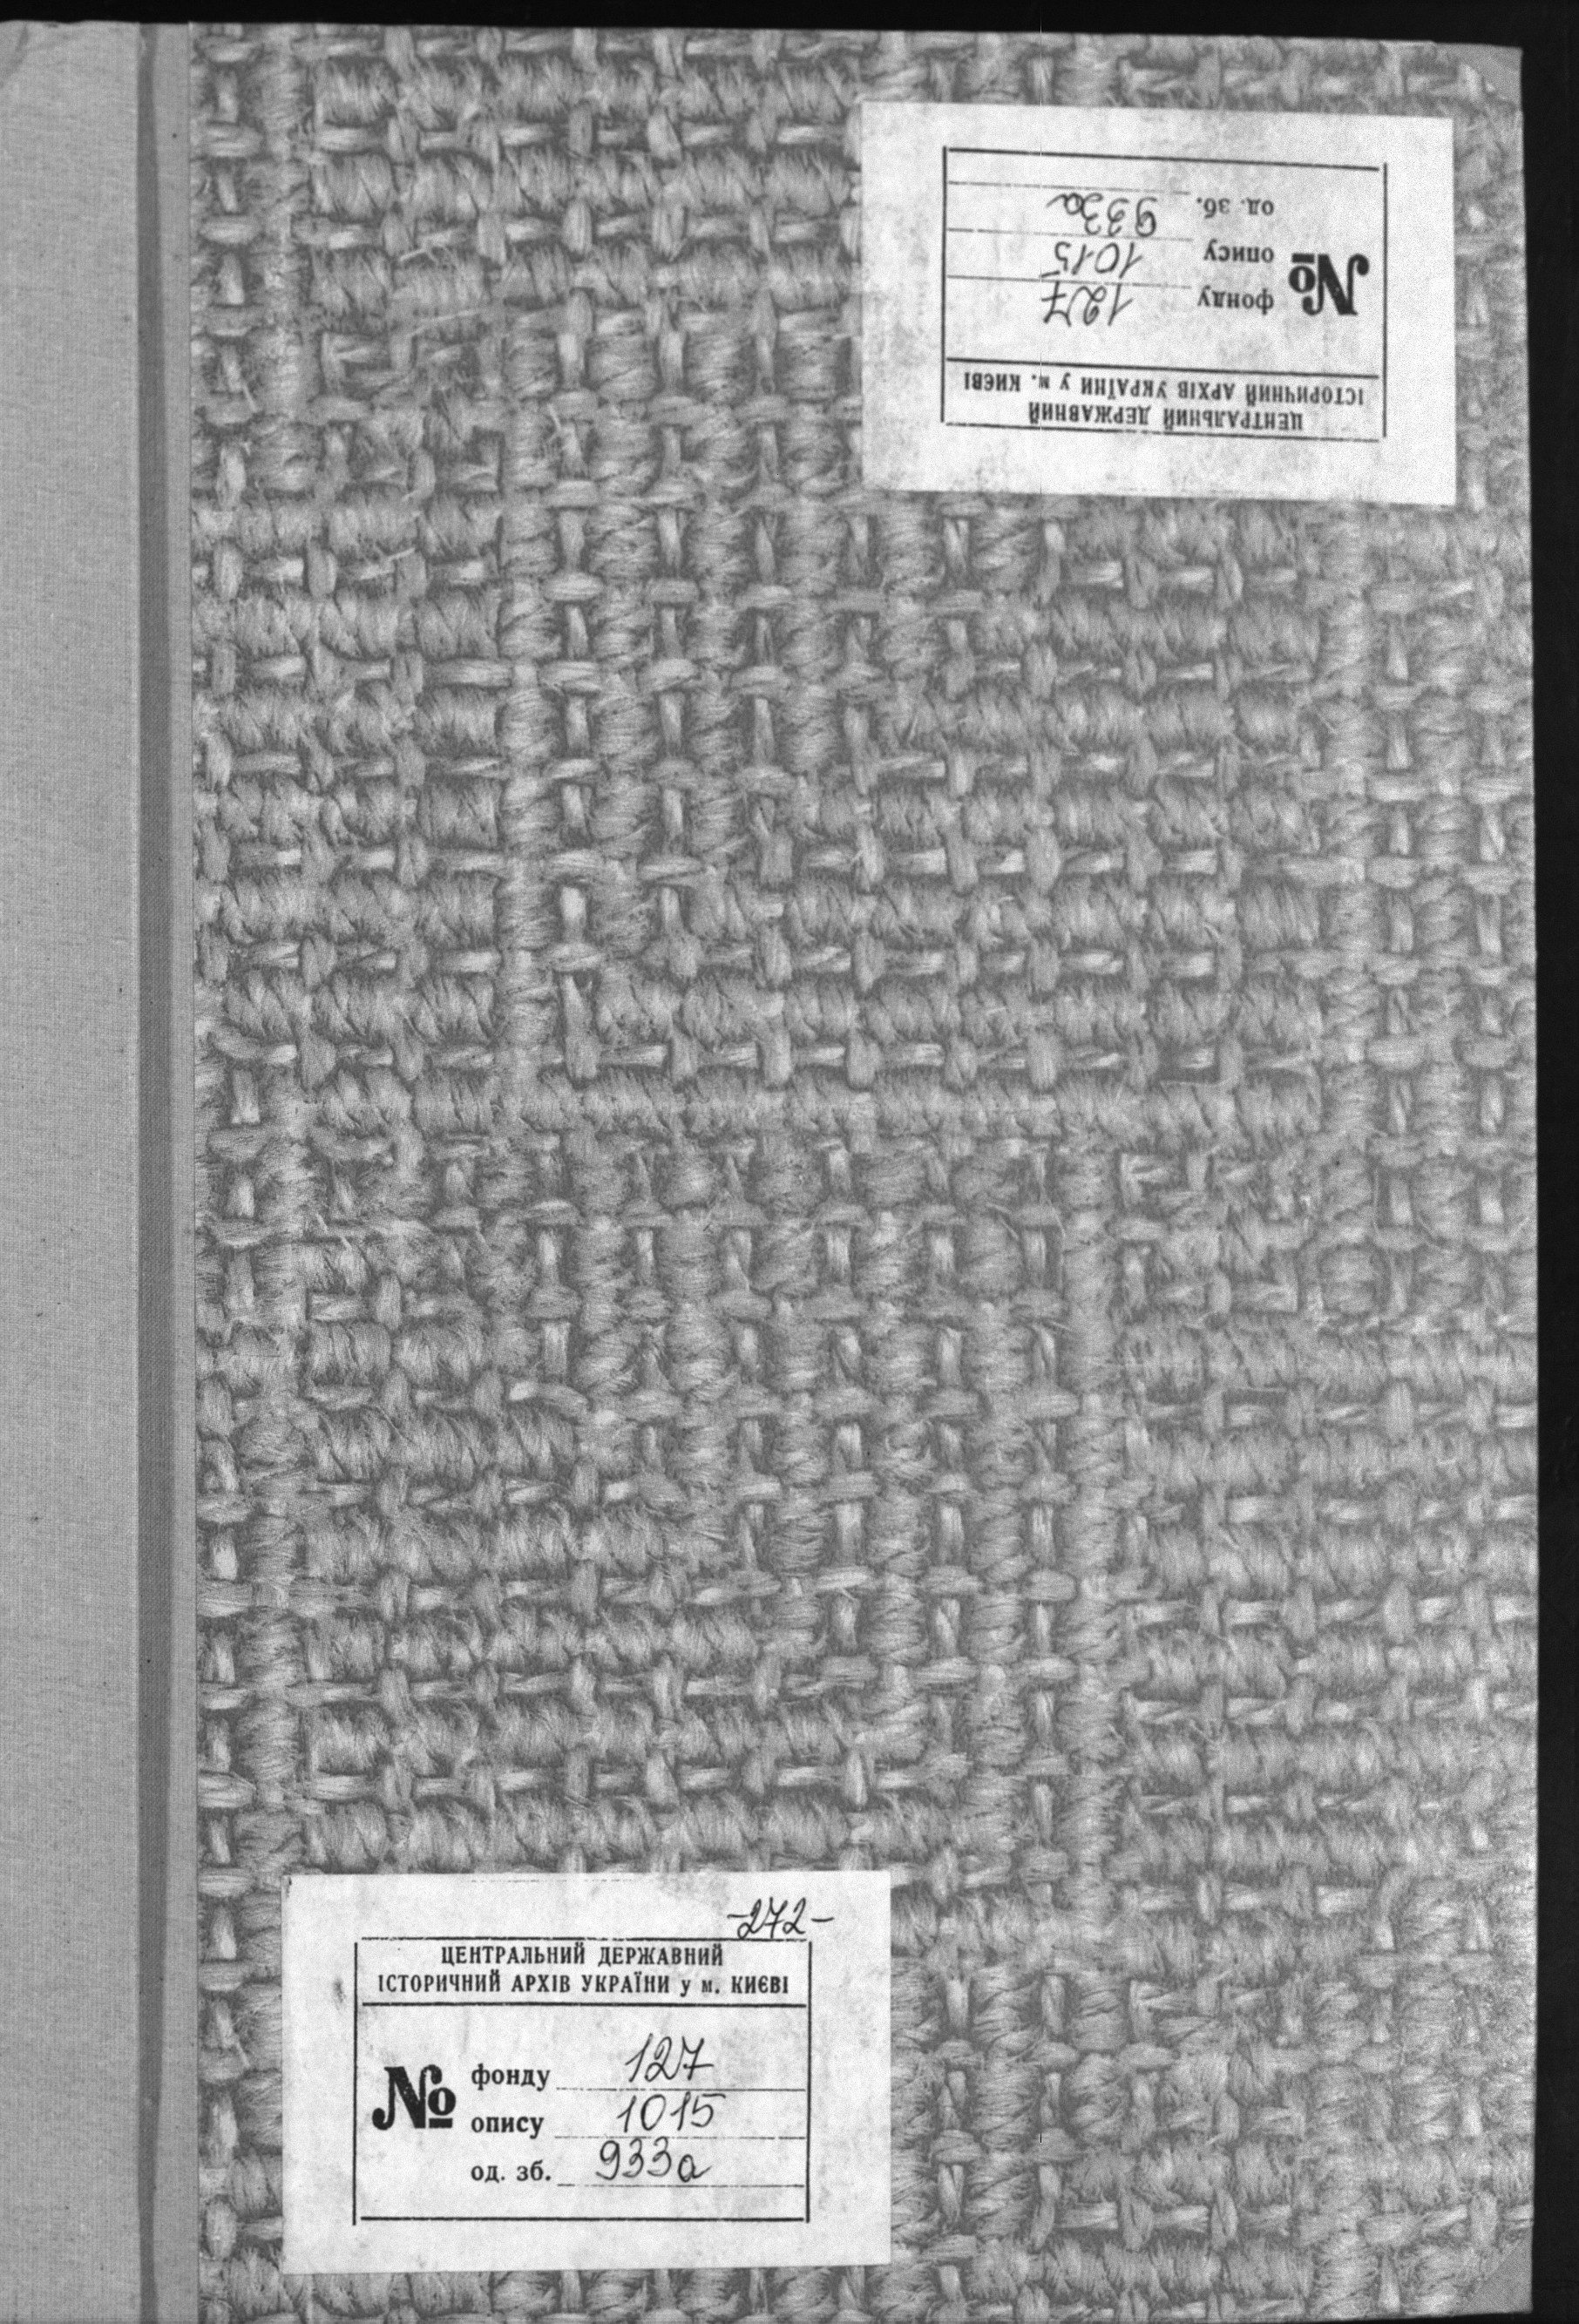 ЦЕНТРАЛЬНИЙ ДЕРЖАВНИЙ
ІСТОРИЧНИЙ АРХІВ УКРАЇНИ у м. КИЄВІ
№
фонду 127
опису 1015
од. зб. 933а
-272-
ЦЕНТРАЛЬНИЙ ДЕРЖАВНИЙ
ІСТОРИЧНИЙ АРХІВ УКРАЇНИ у м. КИЄВІ
№
фонду 127
опису 1015
од. зб. 933а